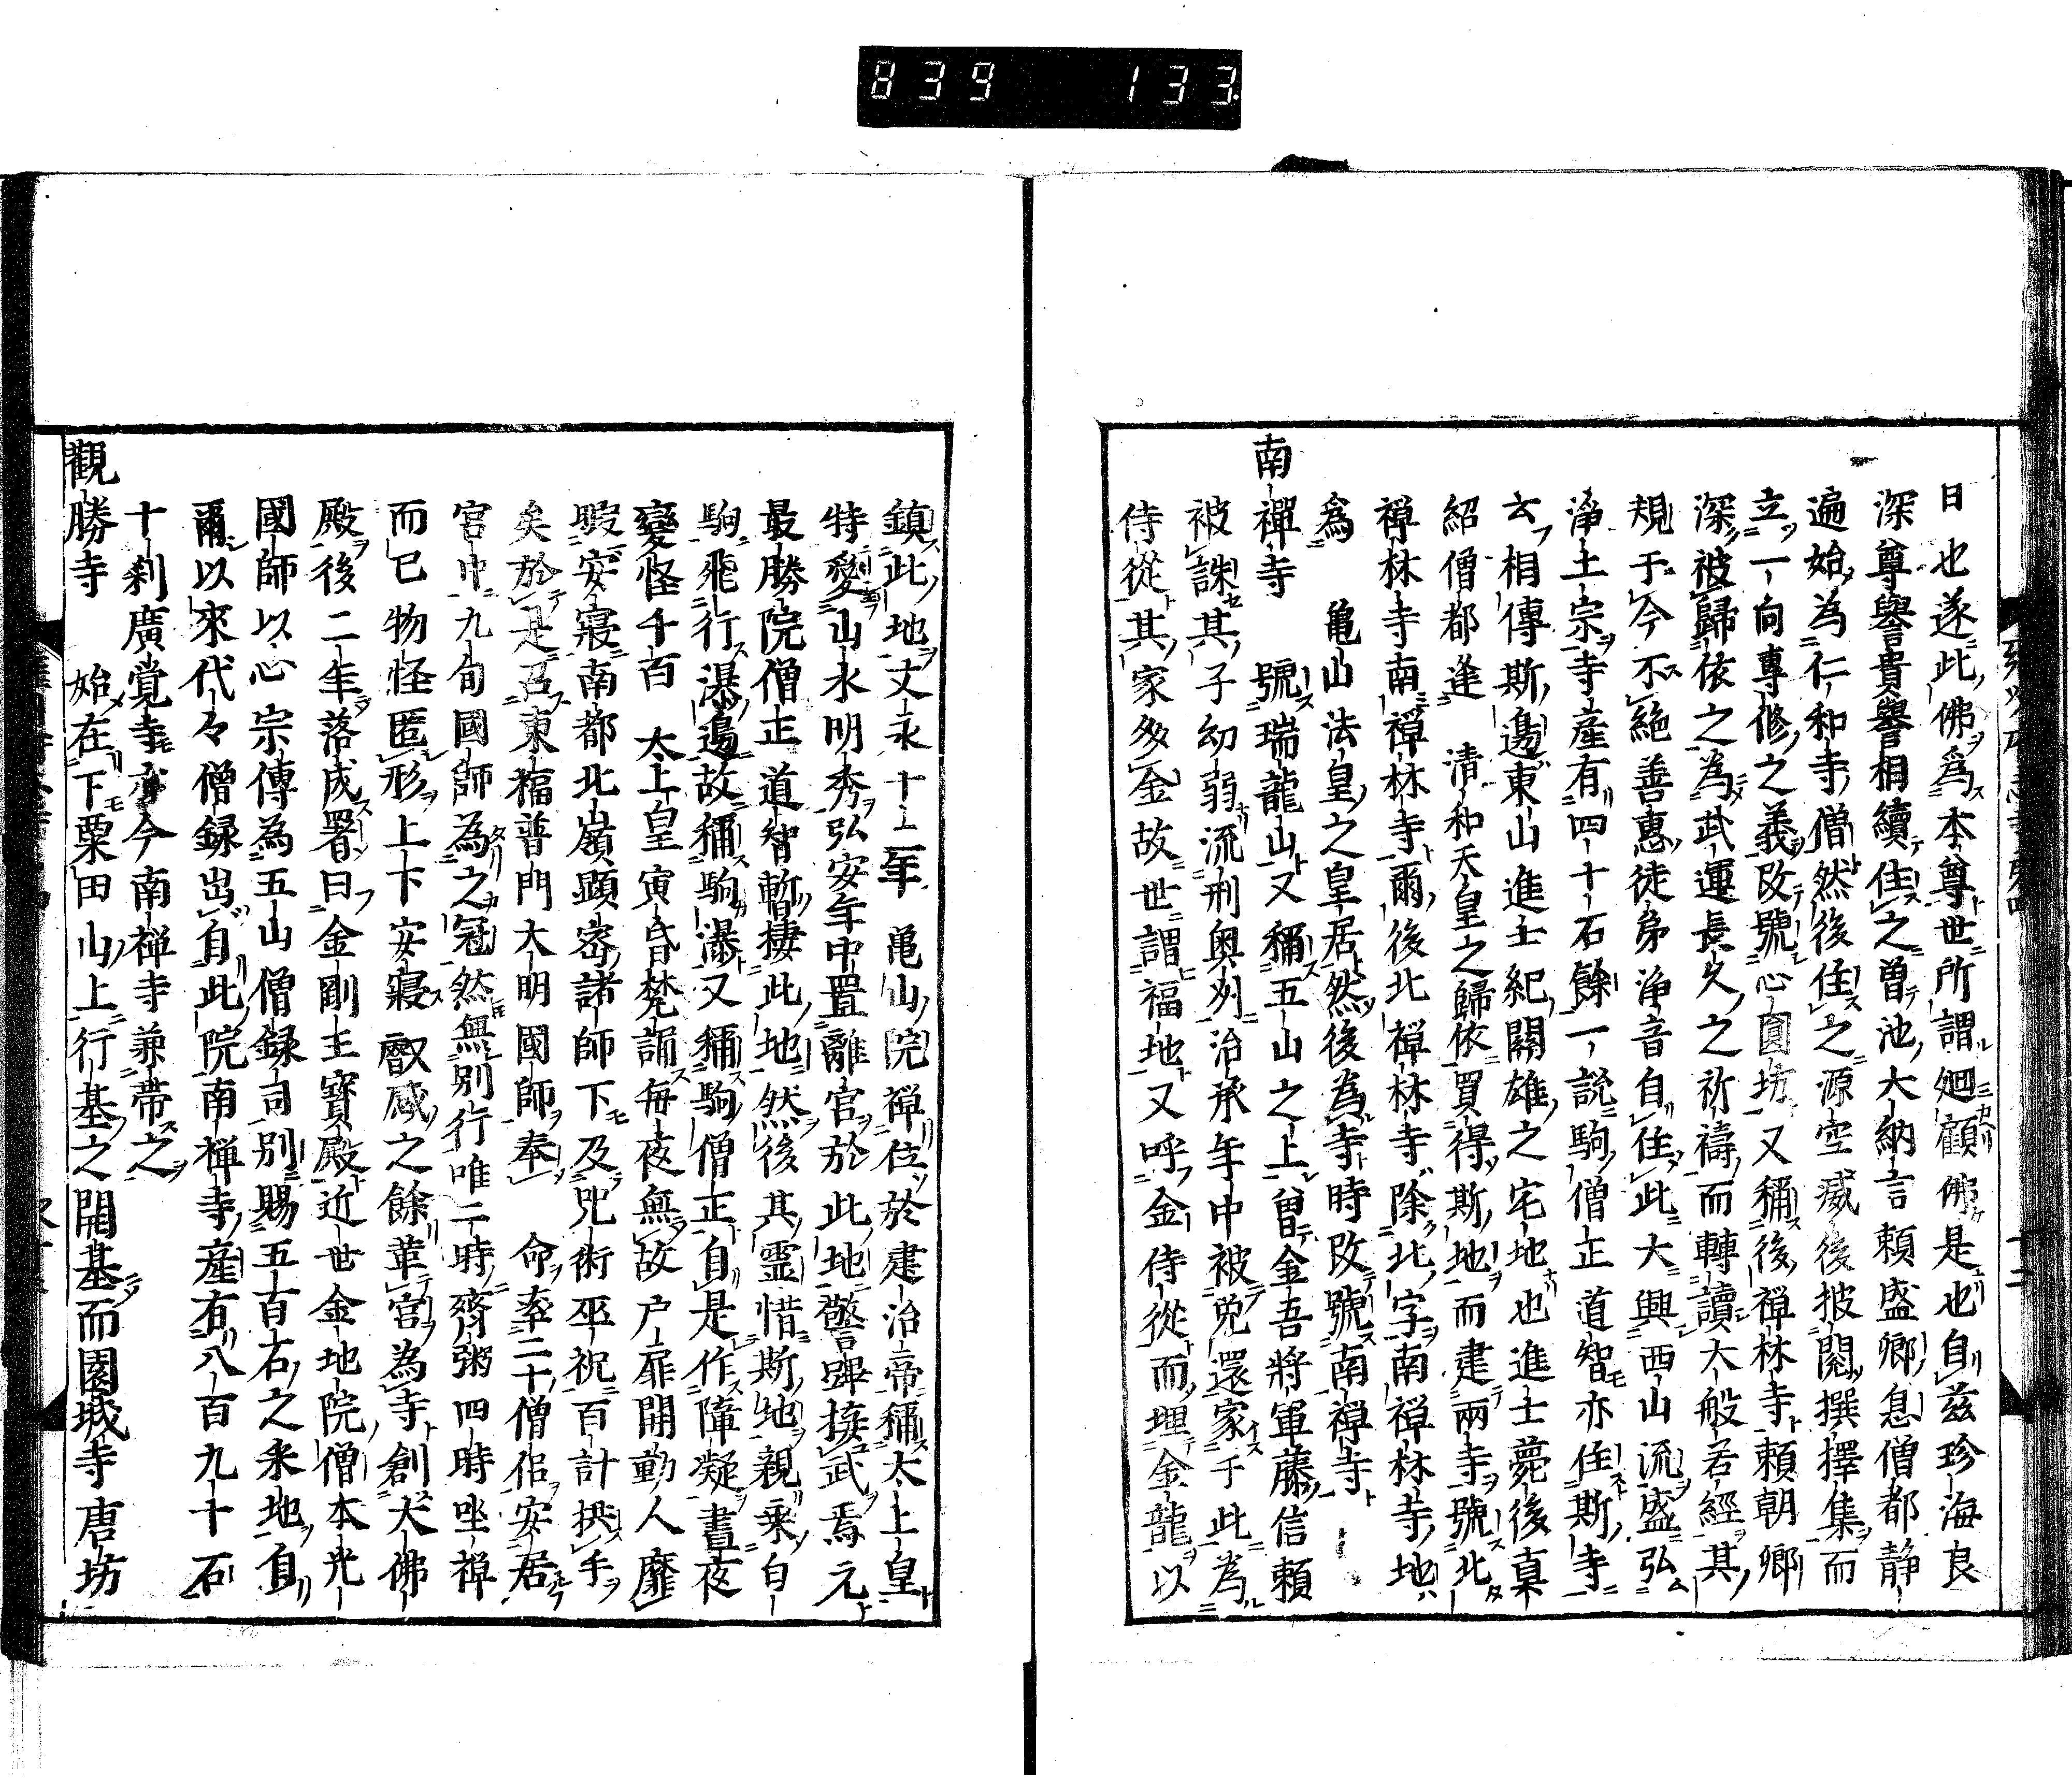 839 133
日也遂此佛爲本尊世所謂廻顧佛是也自茲珍海良
深尊譽貴譽相續住之曽池大納言頼盛卿息僧都静
遍始為仁和寺僧然後住之源空滅後披閲撰擇集而
立一向專修之義改號心圓坊又稱後禅林寺頼朝卿
深被歸依之為武運長久之祈禱而轉讀大般若經其
規于今不絶善惠徒弟浄音自住此大興西山流盛弘
浄土宗寺産有四十石餘一說駒僧正道智亦住斯寺
云相傳斯邊東山進士紀關雄之宅地也進士薨後真
紹僧都逢 清和天皇之歸依買得斯地而建兩寺號北
禅林寺南禅林寺爾後北禅林寺除北字南禅林寺地
爲 亀山法皇之皇居然後為寺時改號南禅寺
南禪寺 號瑞龍山又稱五山之上曽金吾將軍藤信頼
被誅其子幼弱流刑奥州治承年中被免還家于此為
侍從其家多金故世謂福地又呼金侍從而埋金龍以
鎮此地丈永十二年 亀山院禅位於建治帝稱太上皇
特愛山水明秀弘安年中置離宮於此地警蹕接武焉元
最勝院僧正道智暫棲此地然後其靈惜斯地親乘白
駒飛行瀑邊故稱駒瀑又稱駒僧正自是作障礙晝夜
變怪千百 太上皇寅昏梵誦毎夜無故户扉開動人靡
暇安寢南都北嶺顕密諸師下及咒術巫祝百計拱手
矣於是召東福普門大明國師奉 命率二十僧侶安居
宮中九旬國師為之冠然無別行唯二時齊粥四時坐禅
而已物怪匿形上下安寢 叡感之餘革宮為寺創大佛
殿後二年落成署曰金剛王寶殿近世金地院僧本光
國師以心宗傳為五山僧録司別賜五百石之釆地自
爾以來代々僧録出自此院南禅寺産有八百九十石
十刹廣覚寺亦今南禅寺兼帶之
觀勝寺 始在下粟田山上行基之開基而園城寺唐坊